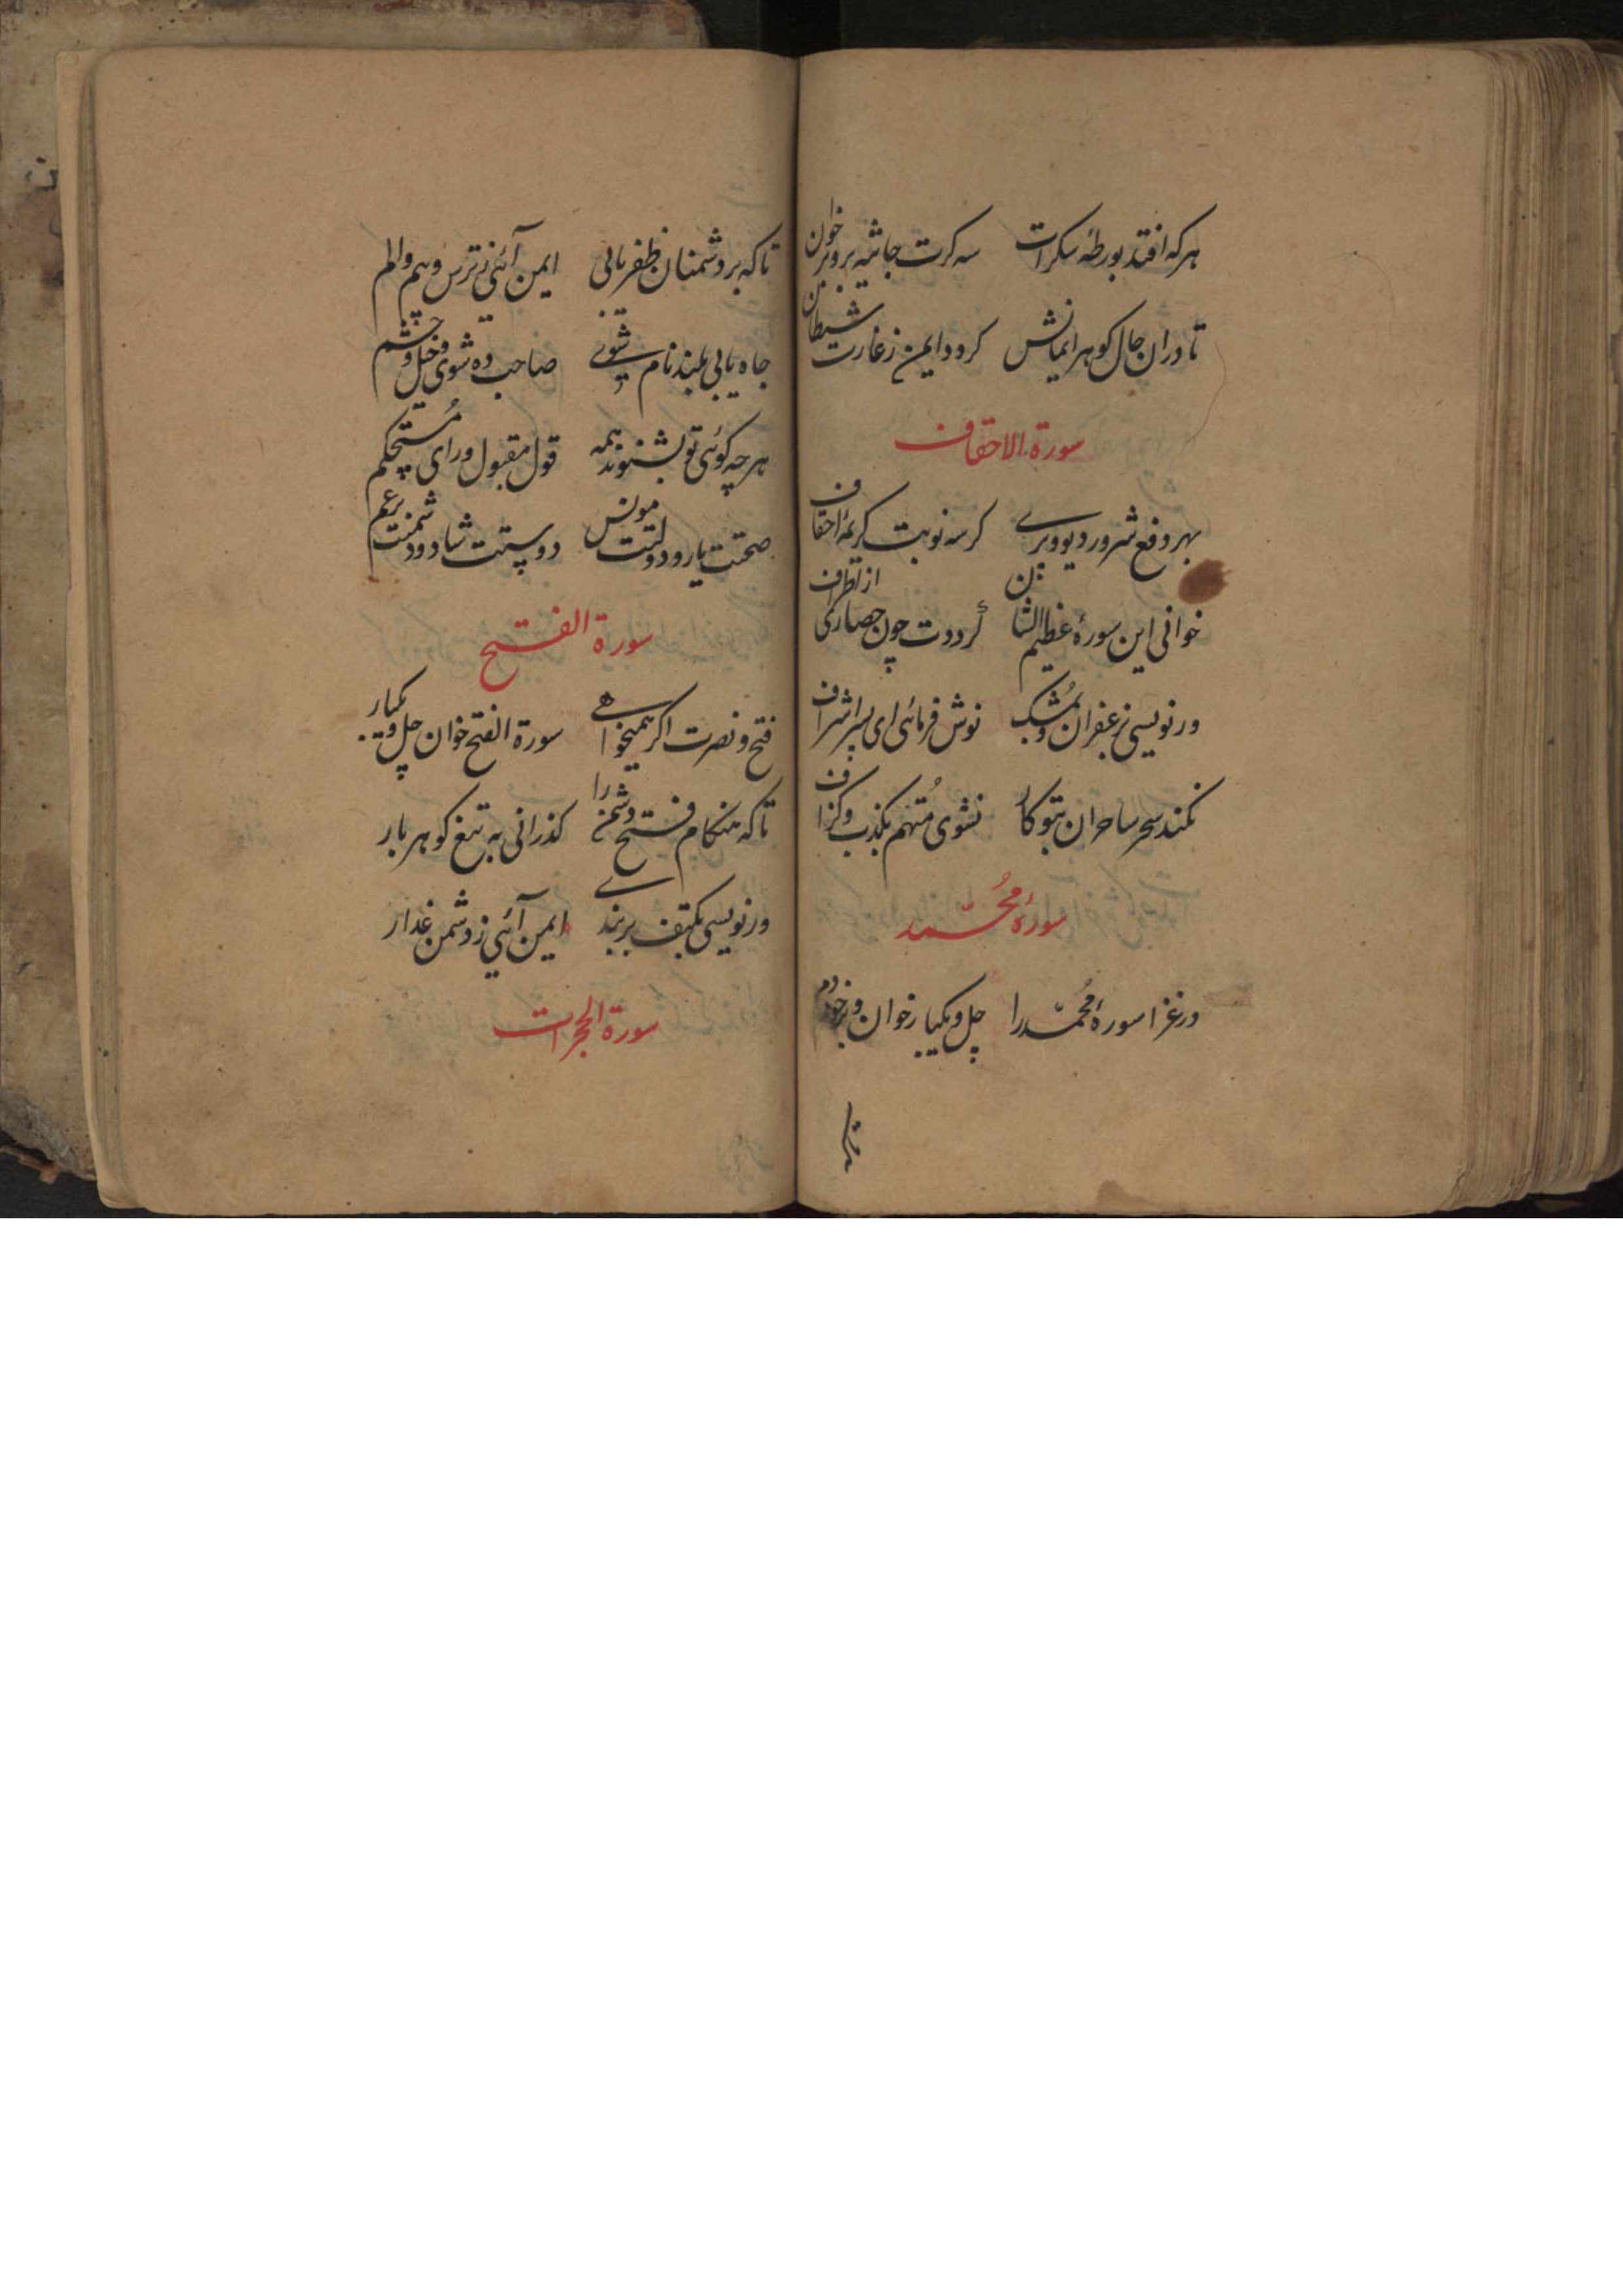 هرکه افتد بورطهٔ سکرات سه کرت جاثیه برو برخوان
تا دران حال کوهر ایمانش کردد ایمن ز غارت شیطان
سورة الاحقاف
بهر دفع شرور دیو و پری کر سه نوبت کریمهٔ احقاف
خوانی این سورهٔ عظیم الشان کرددت چون حصاری از اطراف
ور نویسی بزعفران و مشک نوش فرمائی ای پسر اشراف
نکند سحر ساحران بتو کار نشوی متهم بکذب و کزاف
سورهٔ محمد
در غزا سورهٔ محمد را چل و یکبار خوان و بر خود دم
تاکه
تا که بر دشمنان ظفر یابی ایمن آئی ز ترس و بیم و الم
جاه یابی بلند نام شوی صاحب ده شوی و خیل و حشم
هر چه کوئی تو بشنوند همه قول مقبول و رای مستحکم
صحتت یار و دولتت مونس دوستت شاد و دشمنت بر غم
سورة الفتح
فتح و نصرت اکر همیخواهی سورة الفتح خوان چل و یکبار
تا که هنکام فتح دشمن را کذرانی به تیغ کوهر بار
ور نویسی بکتف بر بندی ایمن آئی ز دشمن غدار
سورة الحجرات